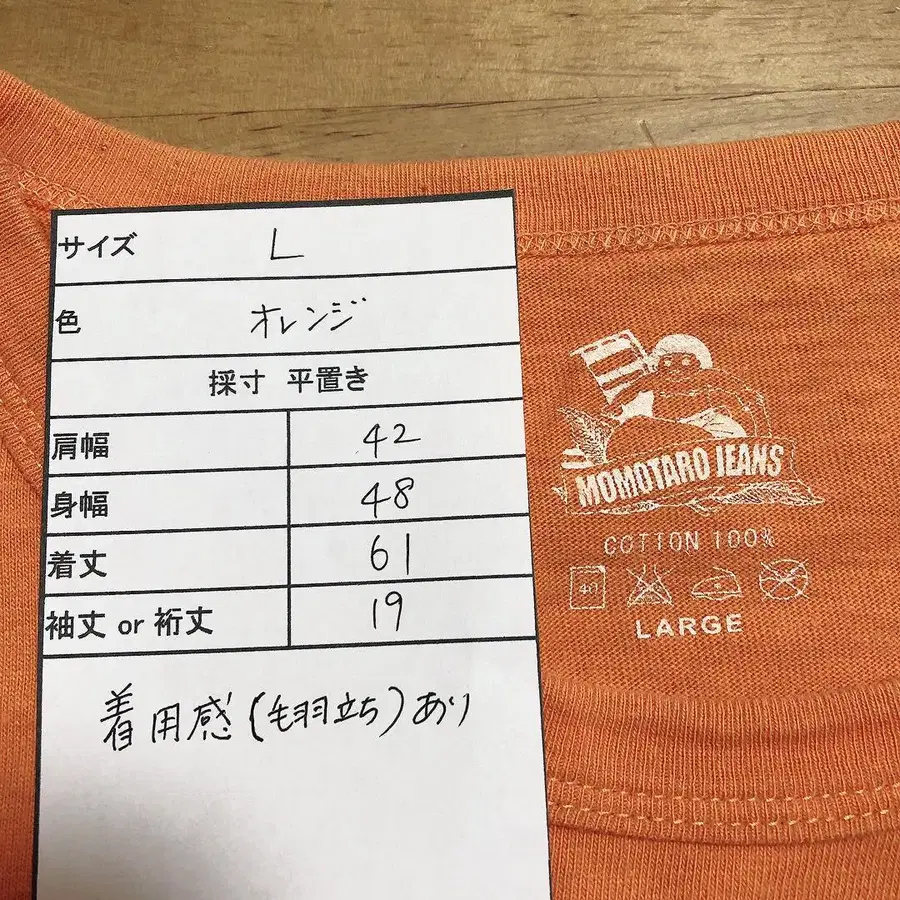 サイズ L
色 オレンジ
採寸 平置き
肩幅 42
身幅 48
着丈 61
袖丈 or 裄丈 19
着用感(毛羽立ち)あり
MOMOTARO JEANS
COTTON 100%
40
LARGE